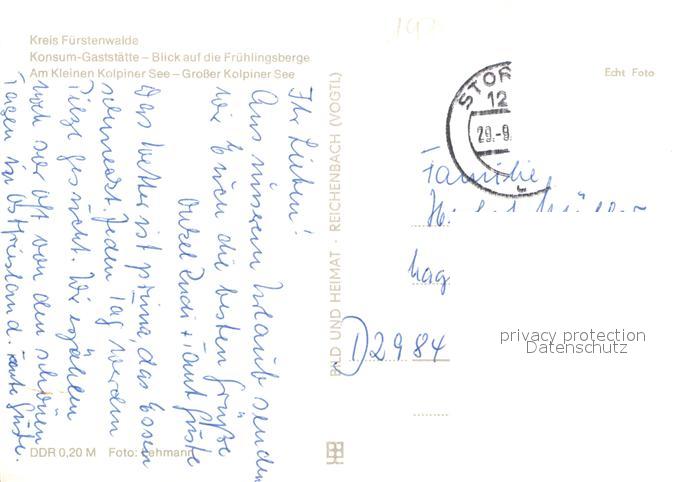 Kreis Fürstenwalde
Konsum-Gaststätte – Blick auf die Frühlingsberge
Am Kleinen Kolpiner See – Großer Kolpiner See
Ihr Lieben!
Aus unserem Urlaub senden
wir Euch die besten Grüße
Onkel Rudi + Tante Güste
Das Wetter ist prima, das Essen
schmeckt. Jeden Tag werden
Pilze gesucht. Wir erzählen
noch sehr oft von den schönen
Tagen in Ostfriesland. Tante Güste.
DDR 0,20 M Foto: Lehmann
BILD UND HEIMAT · REICHENBACH (VOGTL)
Echt Foto
STOR
12
29.-9.
Familie
Hag
D 2984
privacy protection
Datenschutz